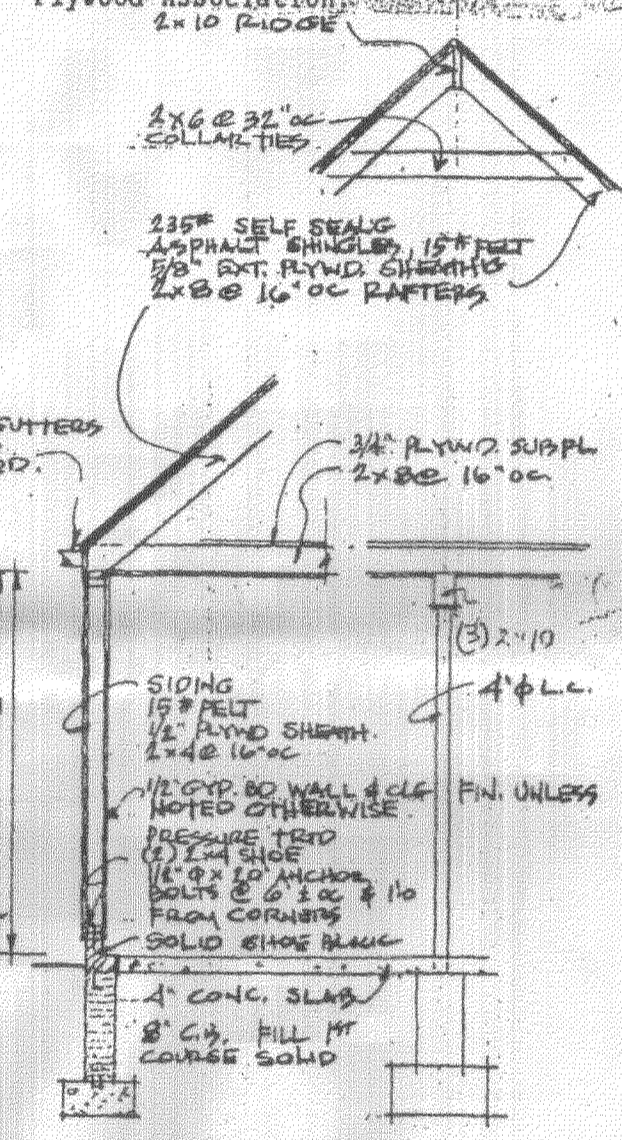 Plywood Association
2x10 RIDGE
2x6 @ 32" OC
COLLAR TIES
235# SELF SEALG
ASPHALT SHINGLES, 15# FELT
5/8" EXT. PLYWD. SHEATH'G
2x8 @ 16" OC RAFTERS
GUTTERS
3/4" PLYWD. SUBFL
2x8 @ 16" OC
(3) 2x10
4" φ L.C.
SIDING
15# FELT
1/2" PLYWD SHEATH.
2x4 @ 16" OC
1/2" GYP. BD WALL & CLG FIN. UNLESS
NOTED OTHERWISE
PRESSURE TRTD
(2) 2x4 SHOE
1/2" φ x 20" ANCHOR
BOLTS @ 6' ± OC & 1'0
FROM CORNERS
SOLID SHOE BLOCK
4" CONC. SLAB
8" C.B. FILL 1ST
COURSE SOLID